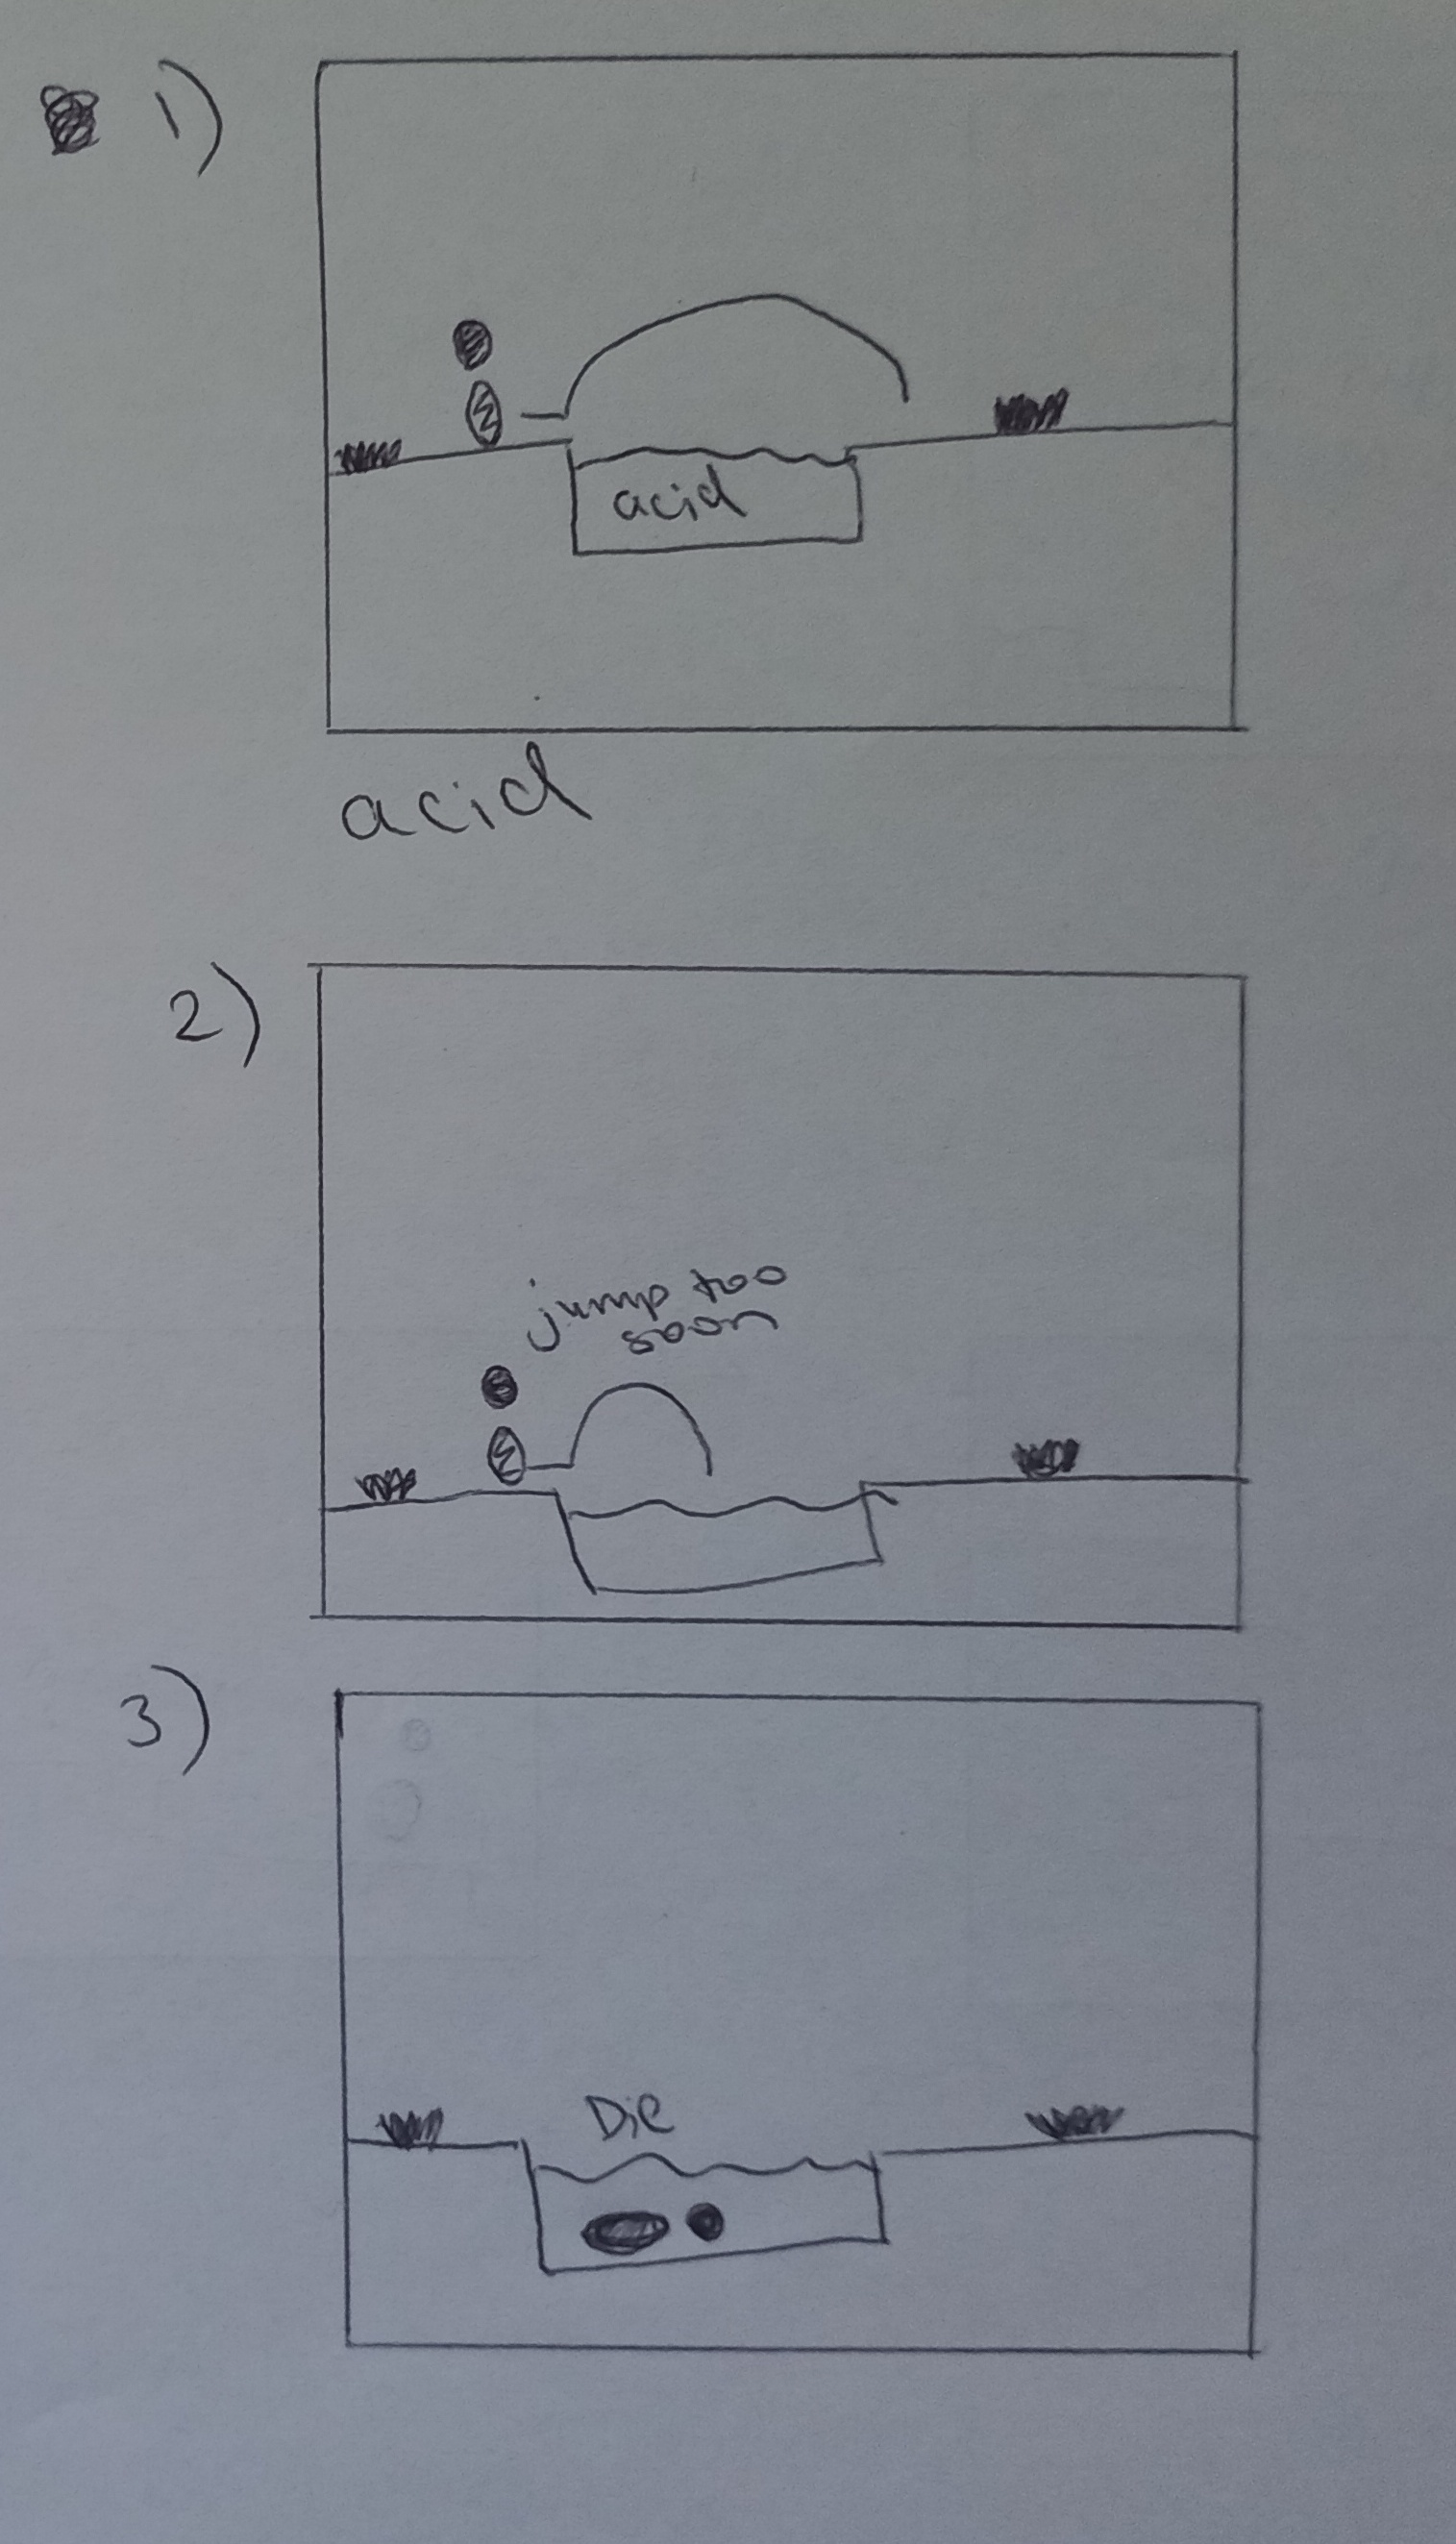 1)
acid
acid
2)
jump too
soon
3)
Die